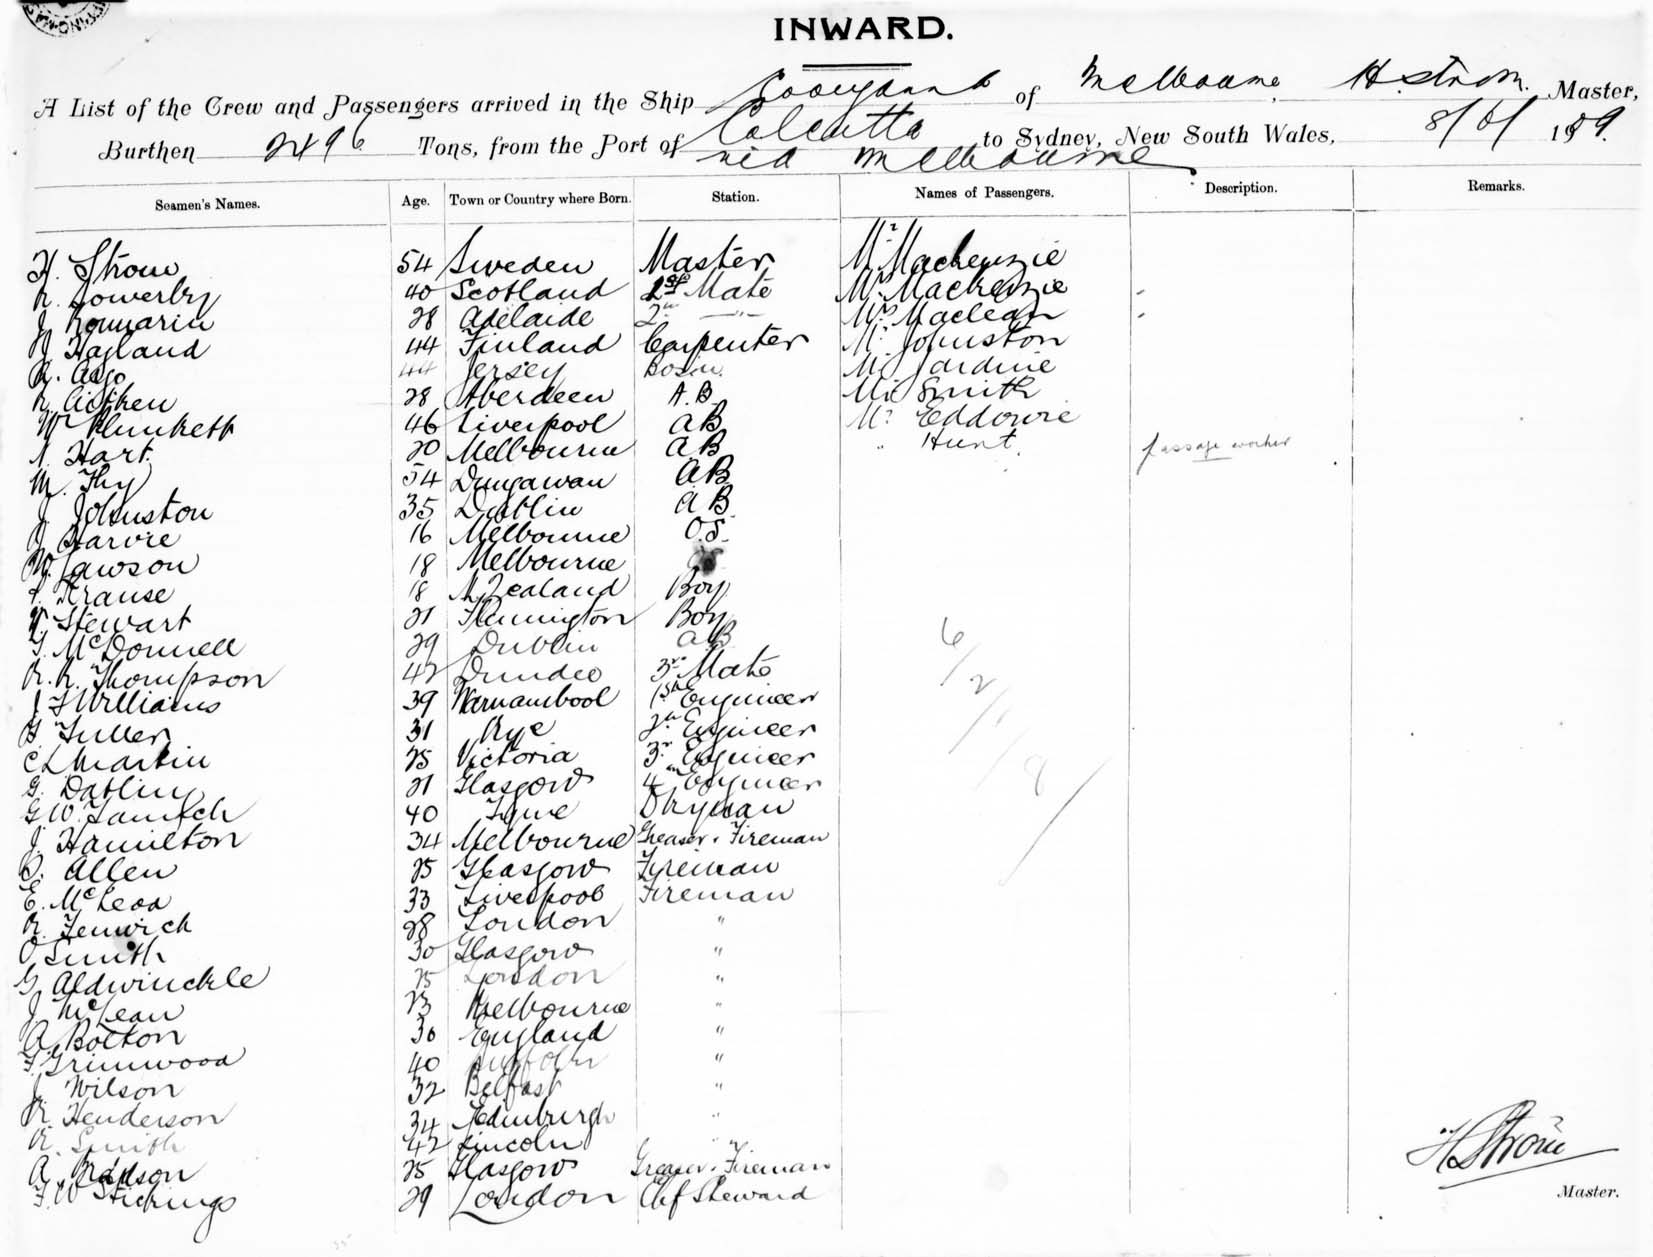 INWARD.
A List of the Crew and Passengers arrived in the Ship of Melbourne, H. Strom. Master,
Burthen 2496 Tons, from the Port of Calcutta to Sydney, New South Wales, 8/6/ 19
via Melbourne
Seamen's Names. Age. Town or Country where Born. Station. Names of Passengers. Description. Remarks.
H. Strom 54 Sweden Master Mr Mackenzie
R. Sowerby 40 Scotland 1st Mate Mrs Mackenzie
J. 28 Adelaide 2nd —"— Mrs Maclean
J Hagland 44 Finland Carpenter Mr Johnston
44 Jersey Bosun. Mr Jardine
R. Aitken 28 Aberdeen A.B. Mr Smith
W Plunkett 46 Liverpool AB Mr Eddowie
Hart. 20 Melbourne AB " Hunt. passage worker
M. 54 Dungawan AB
J. Johnston 35 Dublin AB
J Harvie 16 Melbourne O.S.
W. Lawson 18 Melbourne
Krause 18 N Zealand Boy
W Stewart 21 Flemington Boy
T. McDonnell 29 Dublin AB
R. R. Thompson 42 Dundee 3rd Mate
J F Williams 39 Warnambool 1st Engineer
G Fuller 31 Rye 2nd Engineer
C L Martin 25 Victoria 3rd Engineer
G. Dablin 21 Glasgow 4th Engineer
G W. 40 Tyne Dkyman
J. Hamilton 34 Melbourne Greaser & Fireman
B. Allen 25 Glasgow Fireman
E. McLeod 33 Liverpool Fireman
R. Fenwick 28 London "
O Smith 30 Glasgow "
G Aldwinckle 25 London "
J McLean 23 Melbourne "
A Bolton 30 England "
F. Grimwood 40 Suffolk "
J. Wilson 32 Belfast "
R. Henderson 34 Edinburgh "
R. Smith 42 Lincoln "
A. 25 Glasgow Greaser & Fireman
F. W Stickings 29 London Chf Steward
6/2/18/
H Strom
Master.